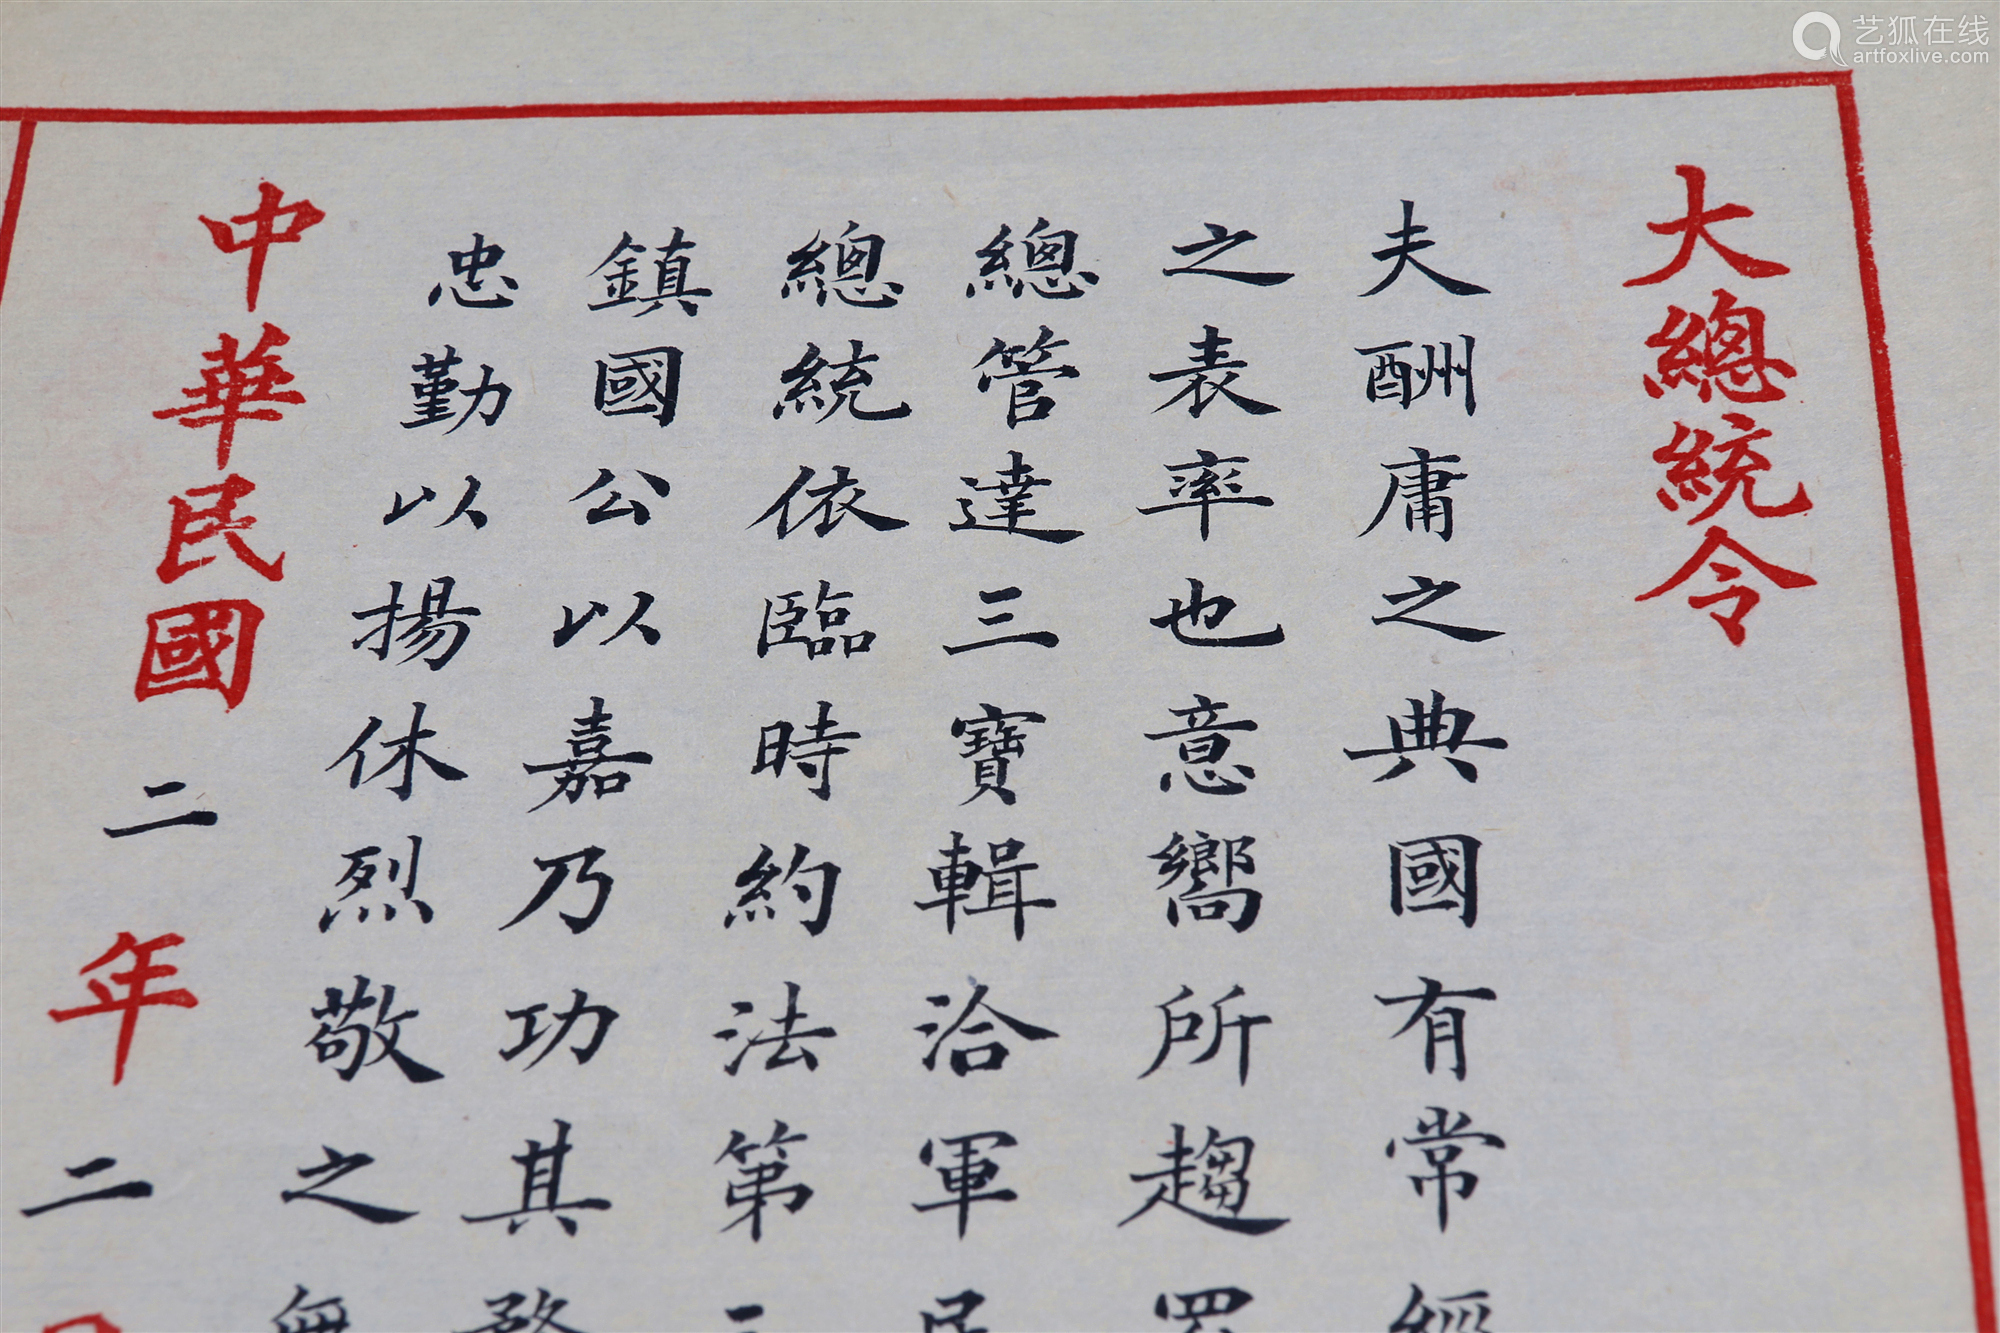 大總統令
夫酬庸之典國有常經
之表率也意嚮所趨
總管達三寶輯洽軍民
總統依臨時約法第二
鎮國公以嘉乃功其
忠勤以揚休烈敬之無
中華民國二年二
艺狐在线
artfoxlive.com